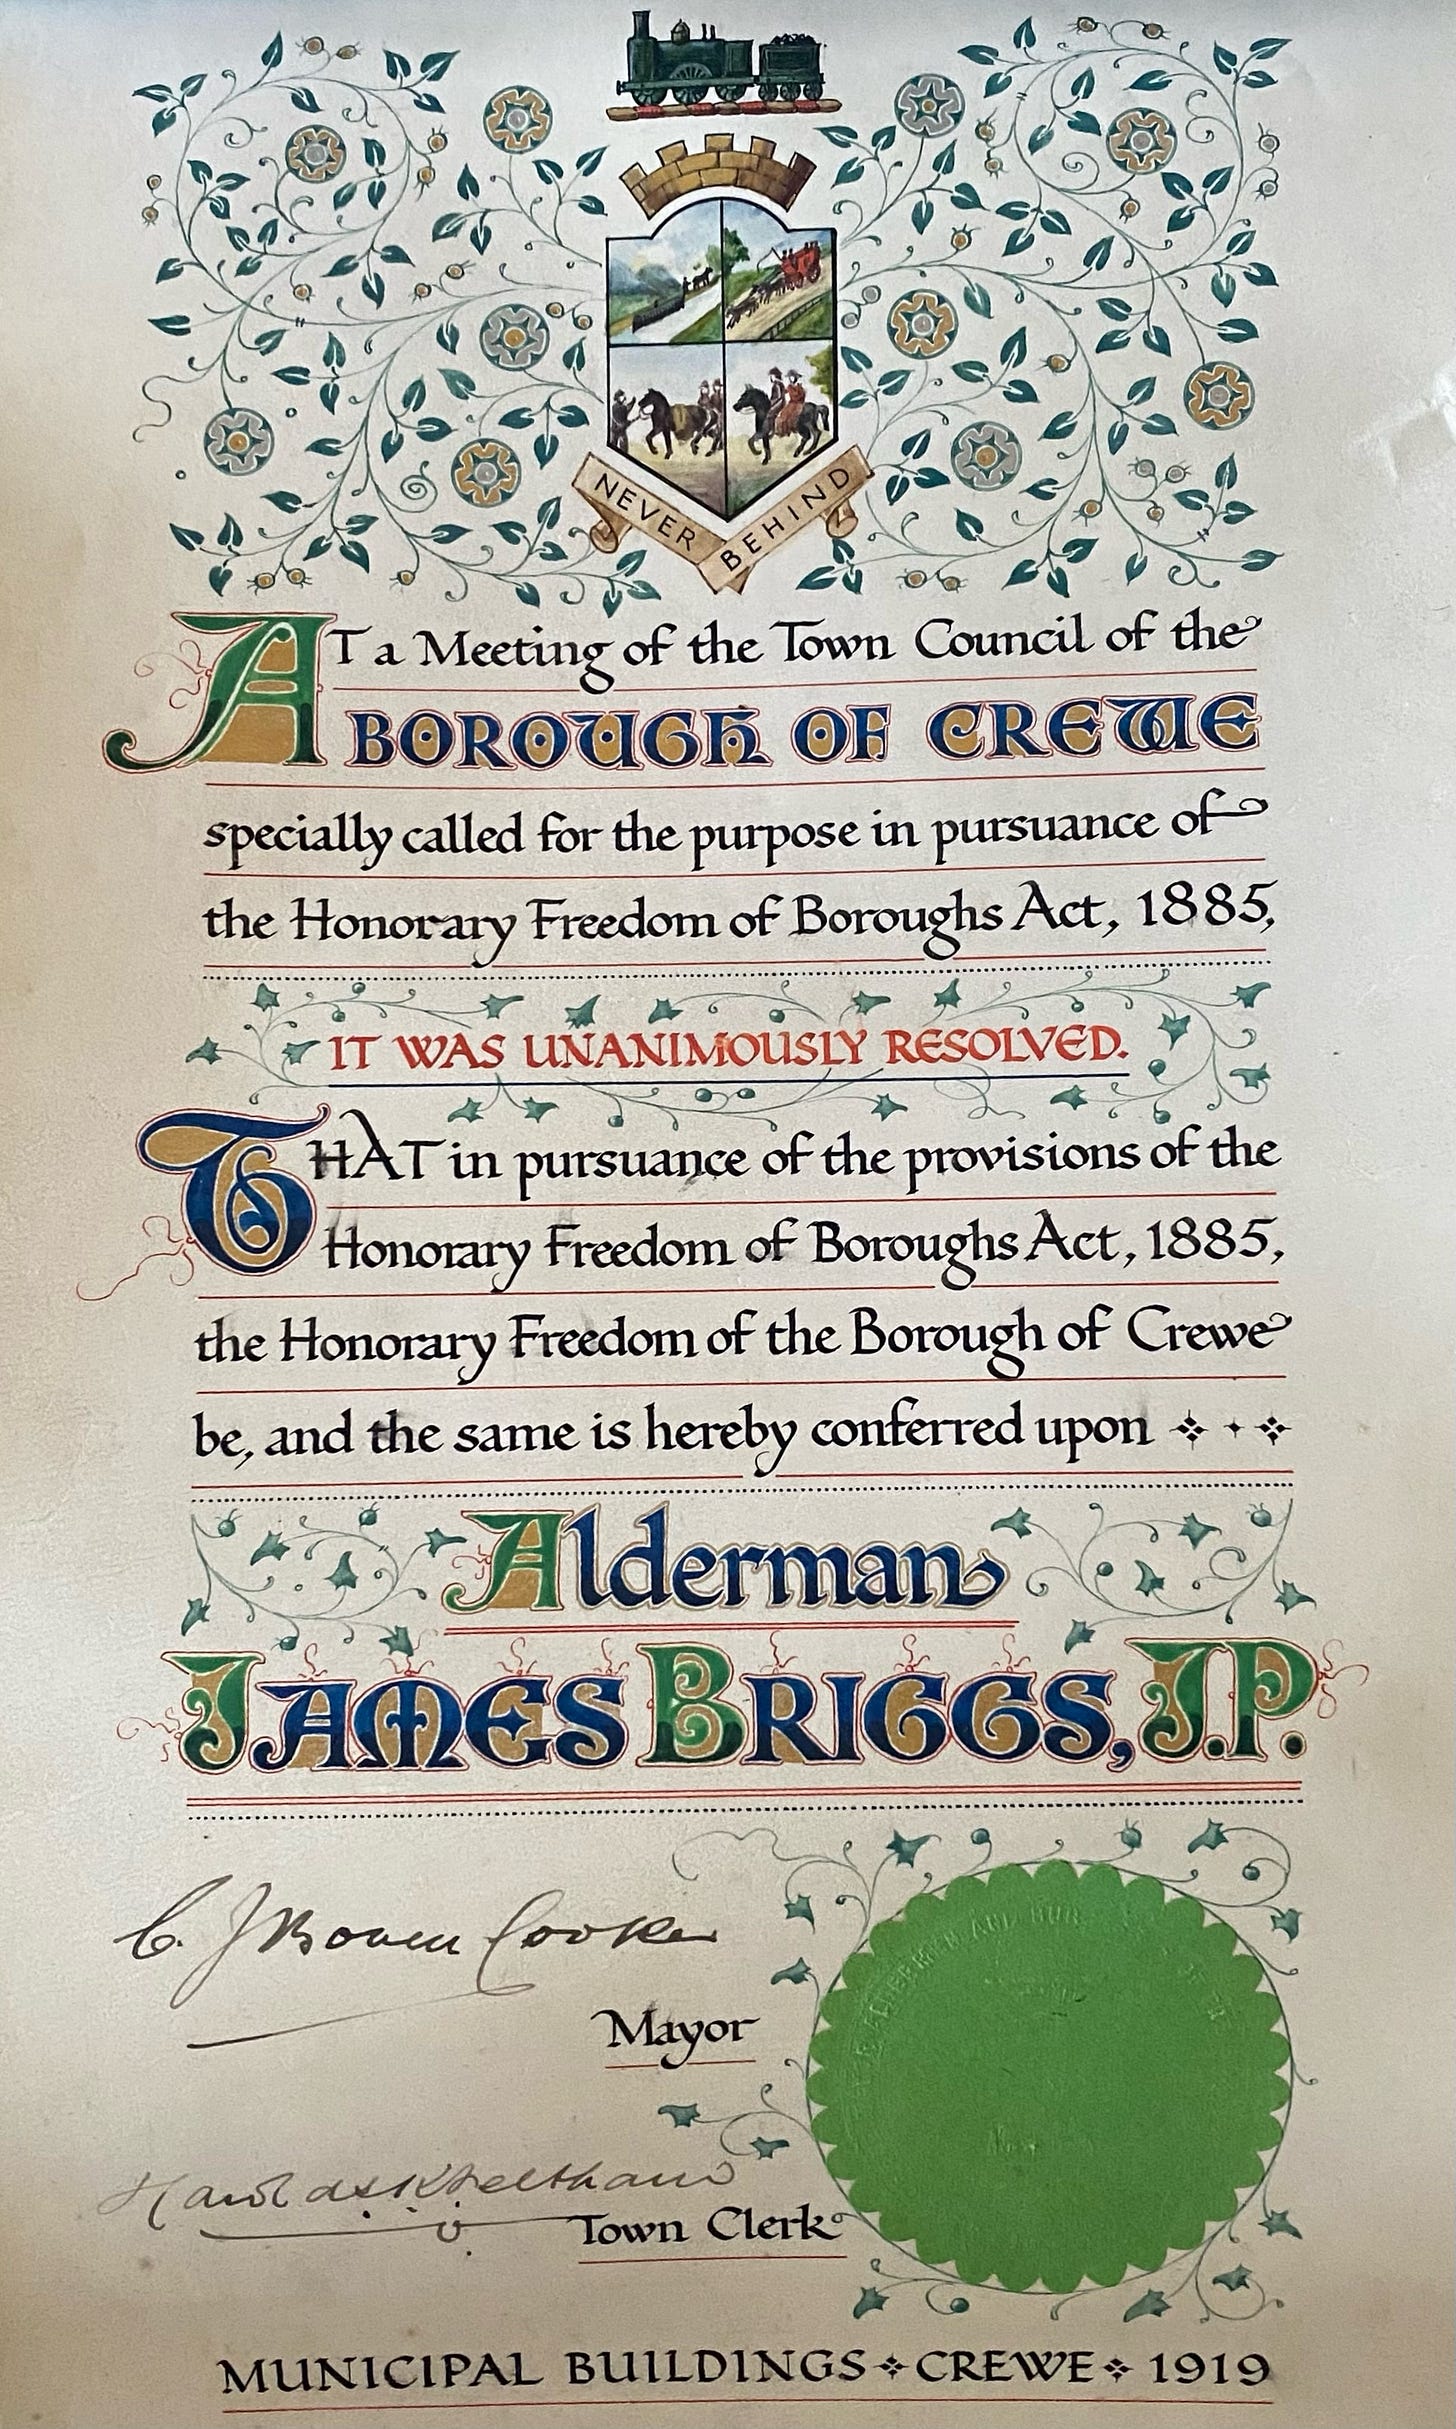 NEVER BEHIND
AT a Meeting of the Town Council of the
BOROUGH OF CREWE
specially called for the purpose in pursuance of
the Honorary Freedom of Boroughs Act, 1885,
IT WAS UNANIMOUSLY RESOLVED.
THAT in pursuance of the provisions of the
Honorary Freedom of Boroughs Act, 1885,
the Honorary Freedom of the Borough of Crewe
be, and the same is hereby conferred upon
Alderman
JAMES BRIGGS, J.P.
C. J. Bowen Cooke
Mayor
Town Clerk
MUNICIPAL BUILDINGS CREWE 1919